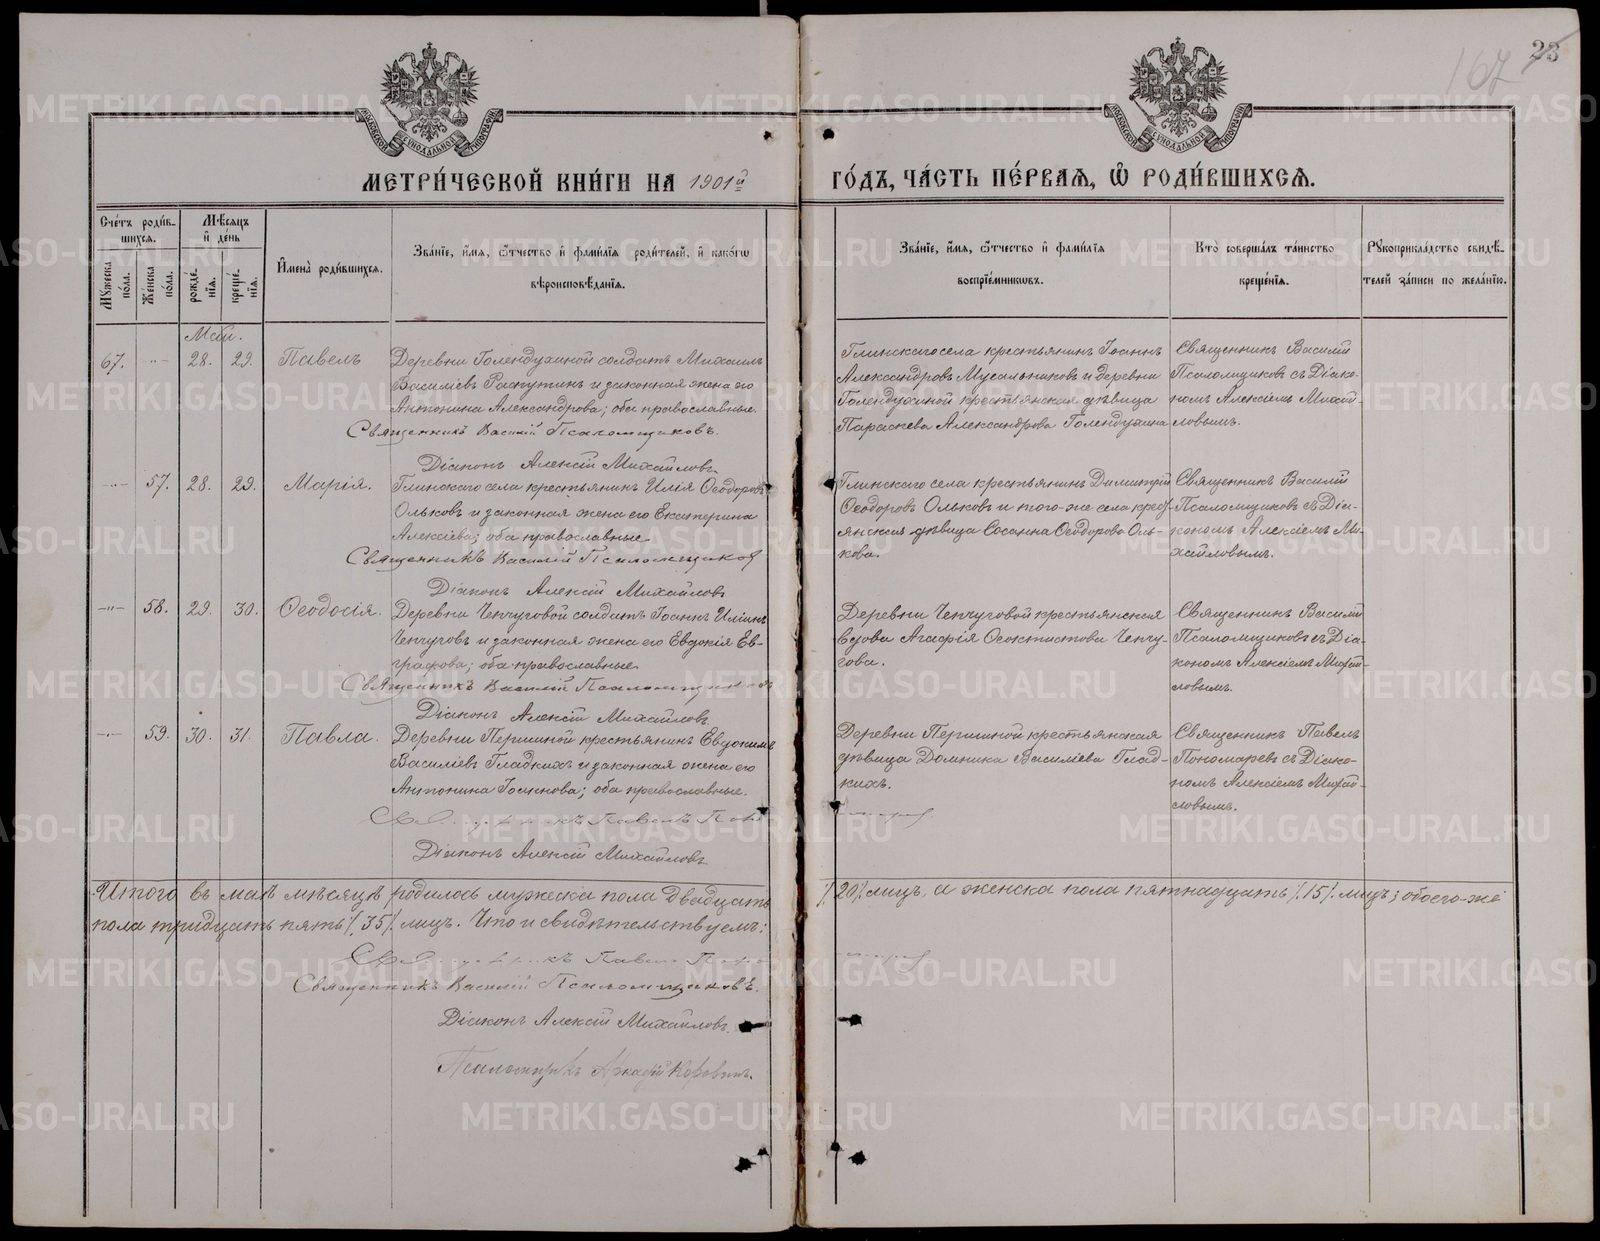 167 23
МЕТРИ́ЧЕСКОЙ КНИ́ГИ НА 1901й
ГО́ДЪ, ЧА́СТЬ ПЕ́РВАЯ, Ѿ РОДИ́ВШИХСЯ.
Сче́тъ роди́в-
шихся.
Му́жеска по́ла.
Же́нска по́ла.
Мѣ́сяцъ и́ де́нь
рожде́нїя.
креще́нїя.
И́мена роди́вшихся.
Зва́нїе, и́мя, ѻ҆́тчество и҆ фами́лїя роди́телей, и҆ како́гѡ
вѣроисповѣ́данїя.
Зва́нїе, и҆́мя, ѻ҆́тчество и҆ фами́лїя
воспрїе́мникѡвъ.
Кто̀ соверша́лъ та́инство
креще́нїя.
Рꙋкоприкла́дство свидѣ́-
телей за́писи по жела́нїю.
Маи.
67. -"- 28. 29. Павелъ
Деревни Голендухиной солдатъ Михаилъ
Василіевъ Распутинъ и законная жена его
Антонина Александрова; оба православные.
Священникъ Василій Псаломщиковъ.
Діаконъ Алексій Михайловъ
Глинскаго села крестьянинъ Іоаннъ
Александровъ Мусальниковъ и деревни
Голендухиной крестьянская дѣвица
Параскева Александрова Голендухина
Священникъ Василій
Псаломщиковъ съ Діако-
номъ Алексіемъ Михай-
ловымъ.
-"- 57. 28. 29. Марія.
Глинскаго села крестьянинъ Илія Ѳеодоровъ
Ольковъ и законная жена его Екатерина
Алексіева; оба православные
Священникъ Василій Псаломщиков
Діаконъ Алексій Михайловъ
Глинскаго села крестьянинъ Димитрій
Ѳеодоровъ Ольковъ и того-же села крест-
янская дѣвица Сосанна Ѳеодорова Оль-
кова.
Священникъ Василій
Псаломщиковъ съ Діа-
кономъ Алексіемъ Ми-
хайловымъ.
-"- 58. 29. 30. Ѳеодосія.
Деревни Ченчуговой солдатъ Іоаннъ Илiинъ
Ченчуговъ и законная жена его Евдокія Ев-
графова; оба православные.
Священникъ Василій Псаломщиковъ
Діаконъ Алексій Михайловъ
Деревни Ченчуговой крестьянская
вдова Агафія Ѳеоктистова Ченчу-
гова.
Священникъ Василій
Псаломщиковъ съ Діа-
кономъ Алексіемъ Михай-
ловымъ.
-"- 59. 30. 31. Павла.
Деревни Першиной крестьянинъ Евдокимъ
Василіевъ Гладкихъ и законная жена его
Антонина Іоаннова; оба православные.
Священникъ Павелъ Пономарев
Діаконъ Алексій Михайловъ
Деревни Першиной крестьянская
дѣвица Домника Василіева Глад-
кихъ.
Священникъ Павелъ
Пономаревъ съ Діако-
номъ Алексіемъ Михай-
ловымъ.
Итого въ маѣ мѣсяцѣ родилось мужеска пола двадцать /.20/. лицъ, а женска пола пятнадцать /.15/. лицъ; обоего-же
пола тридцать пять /.35/. лицъ. Что и свидѣтельствуемъ:
Священникъ Павелъ Пономарев
Священникъ Василій Псаломщиковъ.
Діаконъ Алексій Михайловъ
Псаломщикъ Аркадій Коровинъ.
METRIKI.GASO-URAL.RU